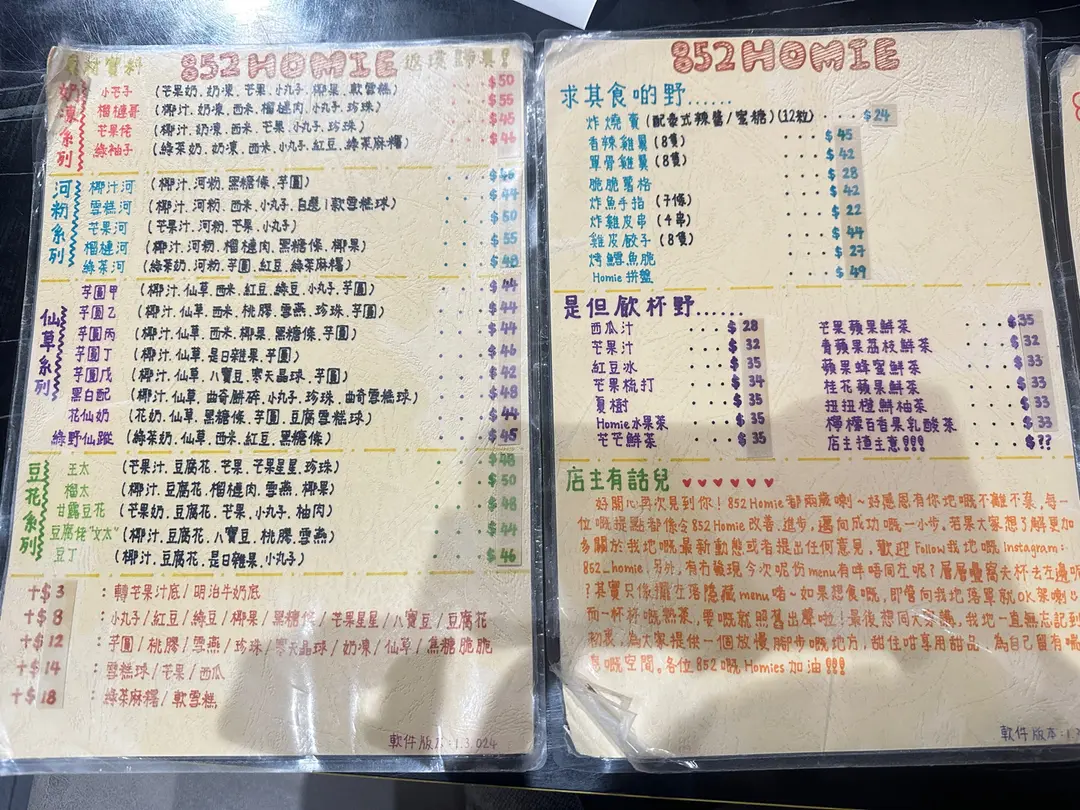 852 HOMIE
奶凍系列
小芒子 (芒果奶.奶凍.芒果.小丸子.椰果.軟雪糕) $50
榴槤哥 (椰汁.奶凍.西米.榴槤肉.小丸子.珍珠) $55
芒果佬 (椰汁.奶凍.西米.芒果.小丸子.珍珠) $45
綠袖子 (綠茶奶.奶凍.西米.小丸子.紅豆.綠茶麻糬) $46
河粉系列
椰汁河 (椰汁.河粉.黑糖條.芋圓)
雪糕河 (椰汁.河粉.西米.小丸子.自選1軟雪糕球) $44
芒果河 (芒果汁.河粉.芒果.小丸子) $50
榴槤河 (椰汁.河粉.榴槤肉.黑糖條.椰果) $55
綠茶河 (綠茶奶.河粉.芋圓.紅豆.綠茶麻糬) $48
仙草系列
芋圓甲 (椰汁.仙草.西米.紅豆.綠豆.小丸子.芋圓) $44
芋圓乙 (椰汁.仙草.西米.桃膠.雪燕.珍珠.芋圓) $44
芋圓丙 (椰汁.仙草.西米.椰果.黑糖條.芋圓) $44
芋圓丁 (椰汁.仙草.是日雜果.芋圓) $46
芋圓戊 (椰汁.仙草.八寶豆.寒天晶球.芋圓) $42
黑白配 (椰汁.仙草.曲奇餅碎.小丸子.珍珠.曲奇雪糕球) $48
花仙奶 (花奶.仙草.黑糖條.芋圓.豆腐雪糕球) $44
綠野仙蹤 (綠茶奶.仙草.西米.紅豆.黑糖條) $45
豆花系列
王太 (芒果汁.豆腐花.芒果.芒果星星.珍珠) $48
榴太 (椰汁.豆腐花.榴槤肉.雪燕.椰果) $50
甘露豆花 (芒果奶.豆腐花.芒果.小丸子.柚肉) $48
豆腐佬"文太" (椰汁.豆腐花.八寶豆.桃膠.雪燕) $44
豆丁 (椰汁.豆腐花.是日雜果.小丸子) $46
+$3 : 轉芒果汁底/明治牛奶底
+$8 : 小丸子/紅豆/綠豆/椰果/黑糖條/芒果星星/八寶豆/豆腐花
+$12 : 芋圓/桃膠/雪燕/珍珠/寒天晶球/奶凍/仙草/焦糖脆脆
+$14 : 雪糕球/芒果/西瓜
+$18 : 綠茶麻糬/軟雪糕
軟件版本:1.3.024
852 HOMIE
求其食啲野......
炸燒賣 (配泰式辣醬/蜜糖)(12粒) $24
香辣雞翼 (8隻) $45
單骨雞翼 (8隻) $42
脆脆薯格 $28
炸魚手指 (7條) $42
炸雞皮串 (4串) $22
雞皮餃子 (8隻) $44
烤鱈魚脆 $27
Homie拼盤 $49
是但飲杯野......
西瓜汁 $28
芒果汁 $32
紅豆冰 $35
芒果梳打 $34
夏樹 $35
Homie水果茶 $35
芒芒鮮茶 $35
芒果蘋果鮮茶 $35
青蘋果荔枝鮮茶 $32
蘋果蜂蜜鮮茶 $33
桂花蘋果鮮茶 $33
扭扭橙鮮柚茶 $33
檸檬百香果乳酸茶 $33
店主揸主意!!! $??
店主有話兒 ♥♥♥♥♥♥
好開心再次見到你！852 Homie都兩歲喇~好感恩有你地嘅不離不棄,每一
位嘅提點都係令852 Homie改善.進步,邁向成功嘅一小步。若果大家想了解更加
多關於我地嘅最新動態或者提出任何意見,歡迎Follow我地嘅Instagram:
852_homie.另外,有冇發現今次呢份menu有咩唔同左呢?層層疊窩夫杯去左邊呢
?其實只係擺左落隱藏menu啫~如果想食嘅,即管向我地落單就OK架喇
而一杯杯嘅熱茶,要嘅就照舊出聲啦!最後想同大家講,我地一直無忘記到
初衷,為大家提供一個放慢腳步嘅地方,甜住咁享用甜品,為自己留有嘅
嘅空間。各位852嘅Homies加油!!!
軟件版本:1.